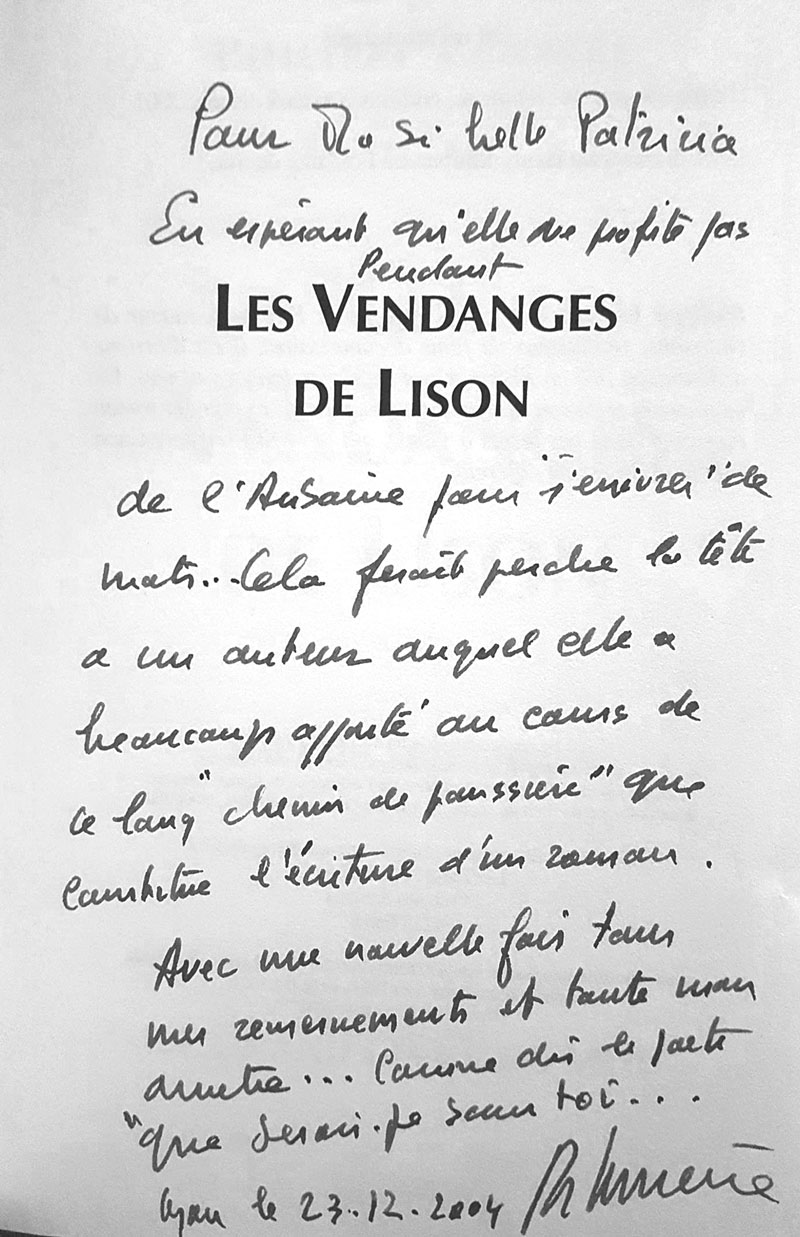 Pour Ma si belle Patricia
En espérant qu'elle ne profite pas
Pendant
LES VENDANGES
DE LISON
de l'Aubaine pour "s'enivrer" de
mots... Cela ferait perdre la tête
a un auteur auquel elle a
beaucoup apporté au cours de
ce long "chemin de poussière" que
constitue l'écriture d'un roman.
Avec une nouvelle fois tous
mes remerciements et toute mon
amitié... Comme dis le poète
"que serais-je sans toi...
Lyon le 23.12.2004